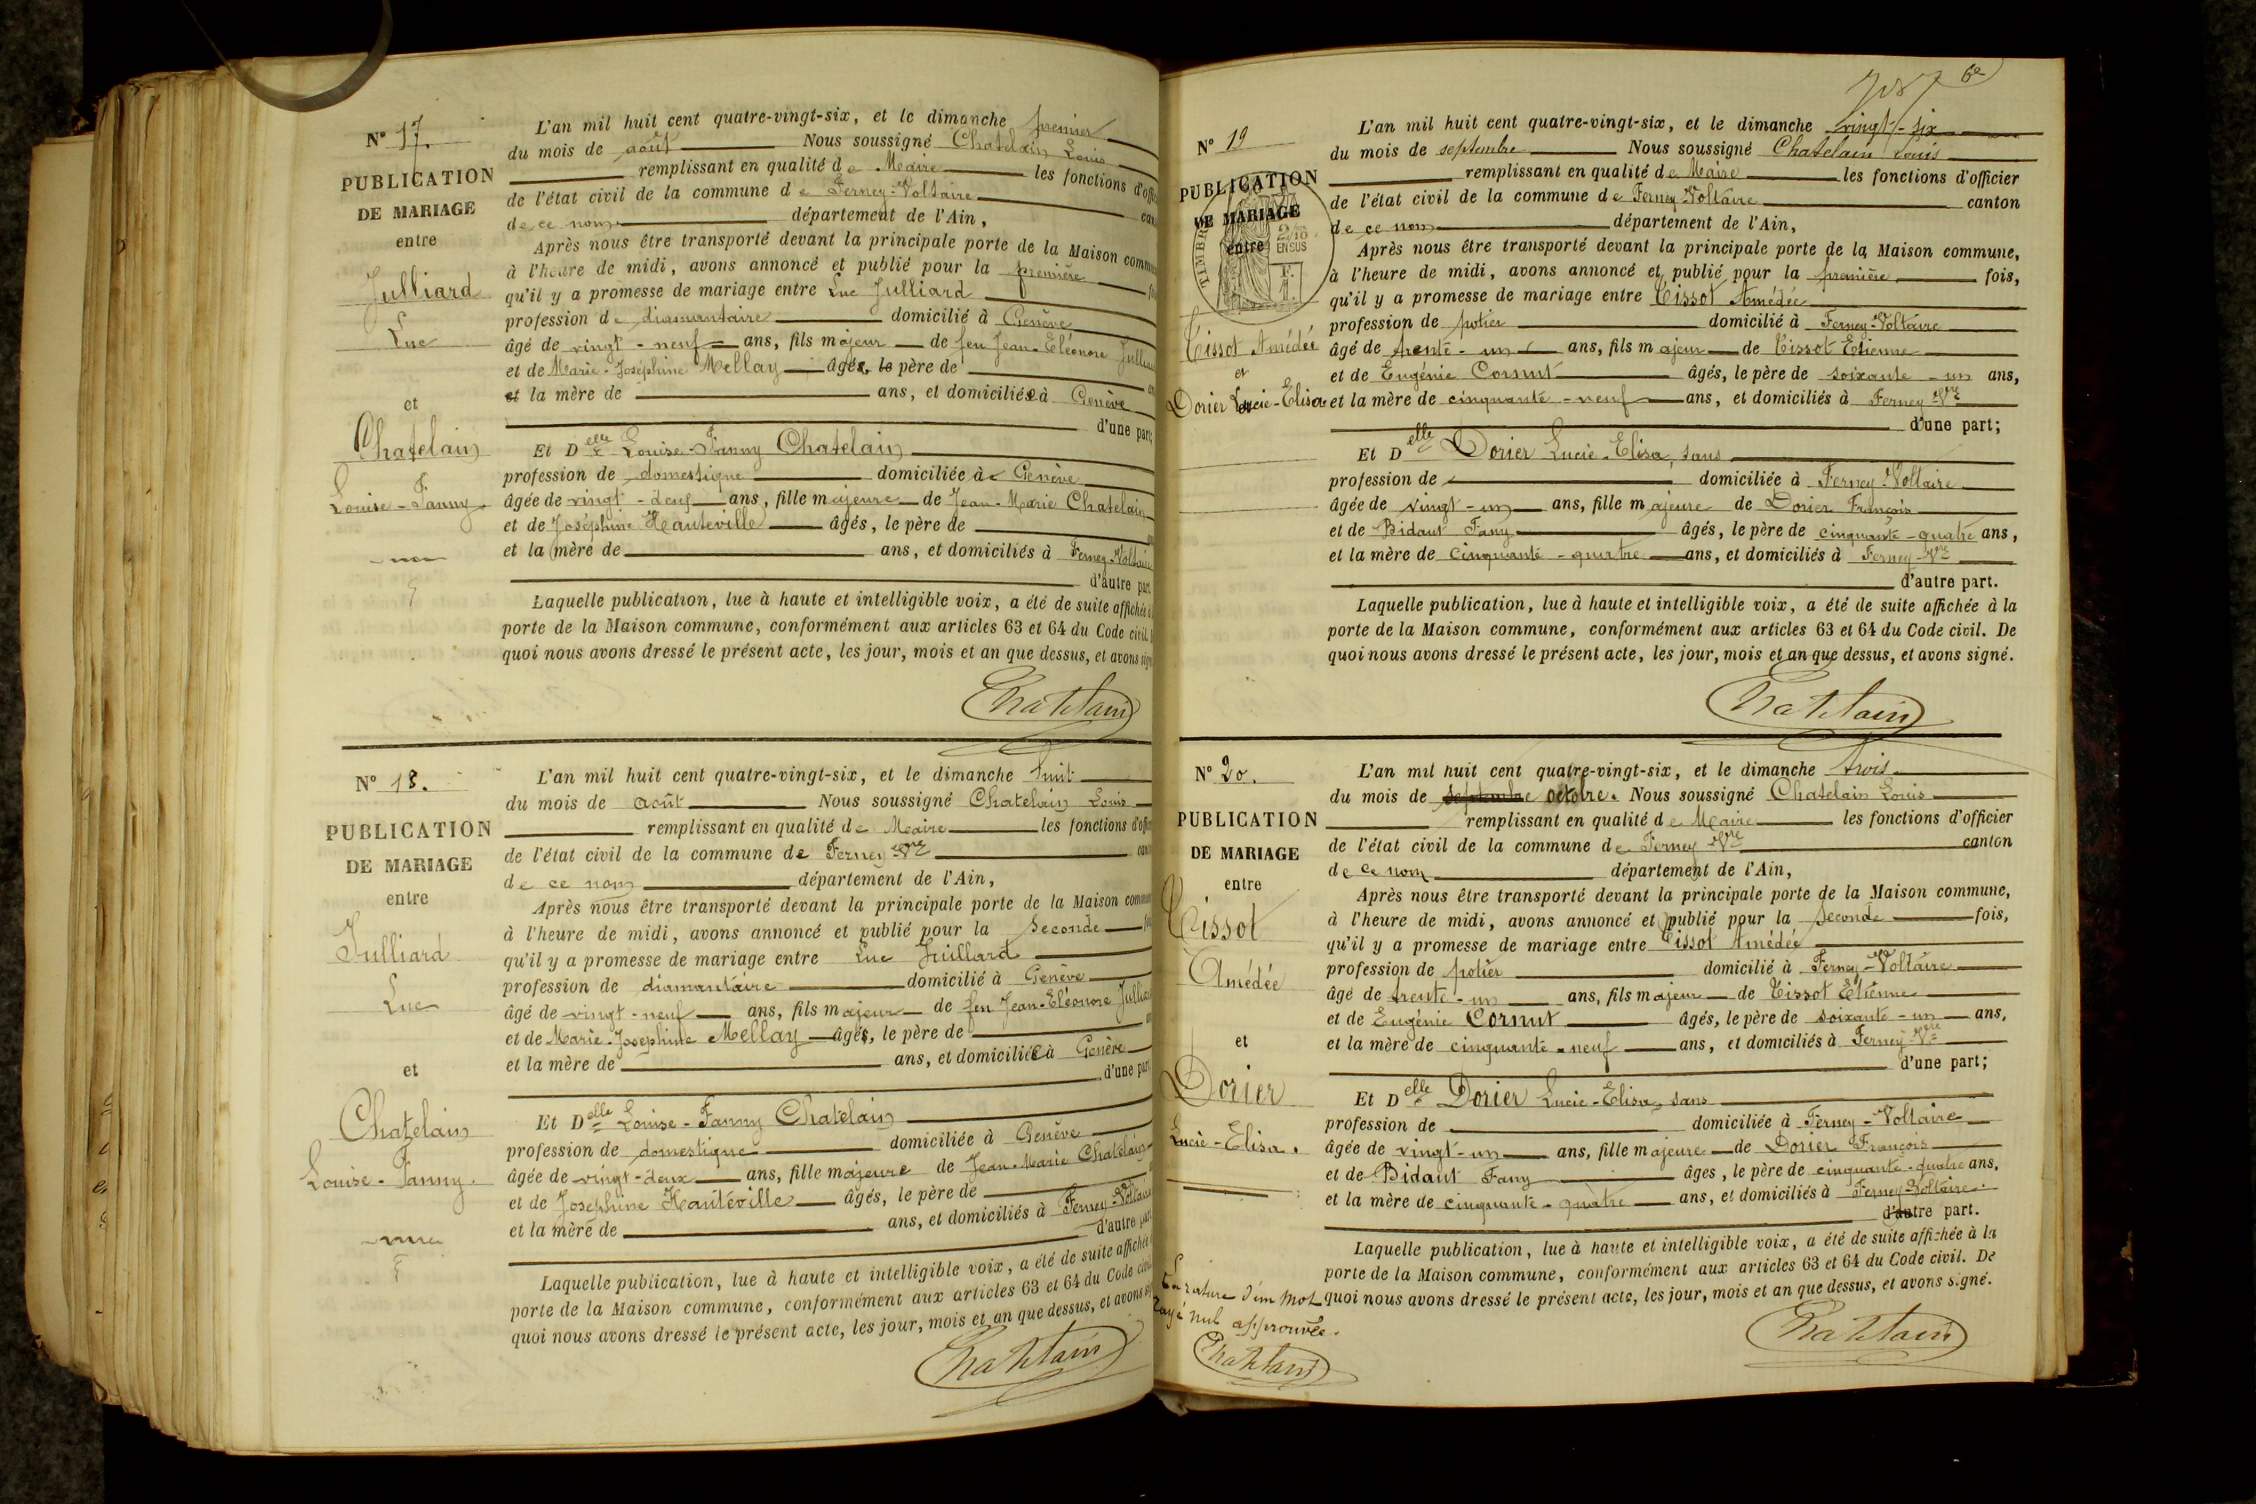 N° 17.
PUBLICATION
DE MARIAGE
entre
Julliard
Luc
et
Chatelain
Louise-Fanny
L'an mil huit cent quatre-vingt-six, et le dimanche premier
du mois de août Nous soussigné Chatelain Louis
remplissant en qualité de Maire les fonctions d'offi
de l'état civil de la commune de Ferney-Voltaire can
de ce nom département de l'Ain,
Après nous être transporté devant la principale porte de la Maison commu
à l'heure de midi, avons annoncé et publié pour la première
qu'il y a promesse de mariage entre Luc Julliard
profession de diamantaire domicilié à Genève
âgé de vingt-neuf ans, fils majeur de feu Jean-Eléonore Julli
et de Marie-Joséphine Mellay âgés, le père de
et la mère de ans, et domiciliée à Genève
d'une part;
Et Delle Louise-Fanny Chatelain
profession de domestique domiciliée à Genève
âgée de vingt-deux ans, fille majeure de Jean-Marie Chatelain
et de Joséphine Hauteville âgés, le père de
et la mère de ans, et domiciliés à Ferney-Voltaire
d'autre part.
Laquelle publication, lue à haute et intelligible voix, a été de suite affichée à
porte de la Maison commune, conformément aux articles 63 et 64 du Code civil.
quoi nous avons dressé le présent acte, les jour, mois et an que dessus, et avons sign
Chatelain
N° 18.
PUBLICATION
DE MARIAGE
entre
Julliard
Luc
et
Chatelain
Louise-Fanny.
L'an mil huit cent quatre-vingt-six, et le dimanche huit
du mois de août Nous soussigné Chatelain Louis
remplissant en qualité de Maire les fonctions d'offi
de l'état civil de la commune de Ferney-Vre can
de ce nom département de l'Ain,
Après nous être transporté devant la principale porte de la Maison commun
à l'heure de midi, avons annoncé et publié pour la seconde
qu'il y a promesse de mariage entre Luc Juillard
profession de diamantaire domicilié à Genève
âgé de vingt-neuf ans, fils majeur de feu Jean-Eléonore Julli
et de Marie-Joséphine Mellay âgés, le père de
et la mère de ans, et domiciliée à Genève
d'une part
Et Delle Louise-Fanny Chatelain
profession de domestique domiciliée à Genève
âgée de vingt-deux ans, fille majeure de Jean-Marie Chatelain
et de Joséphine Hauteville âgés, le père de
et la mère de ans, et domiciliés à Ferney-Voltaire
d'autre part
Laquelle publication, lue à haute et intelligible voix, a été de suite affichée
porte de la Maison commune, conformément aux articles 63 et 64 du Code civil
quoi nous avons dressé le présent acte, les jour, mois et an que dessus, et avons
Chatelain
6e
N° 19
PUBLICATION
DE MARIAGE
entre
TIMBRE
2/10
EN SUS
Tissot Amédée
et
Dorier Lucie-Elisa
L'an mil huit cent quatre-vingt-six, et le dimanche vingt-six
du mois de septembre Nous soussigné Chatelain Louis
remplissant en qualité de Maire les fonctions d'officier
de l'état civil de la commune de Ferney-Voltaire canton
de ce nom département de l'Ain,
Après nous être transporté devant la principale porte de la Maison commune,
à l'heure de midi, avons annoncé et publié pour la première fois,
qu'il y a promesse de mariage entre Tissot Amédée
profession de potier domicilié à Ferney-Voltaire
âgé de trente-un ans, fils majeur de Tissot Etienne
et de Eugénie Cornut âgés, le père de soixante-un ans,
et la mère de cinquante-neuf ans, et domiciliés à Ferney-Vre
d'une part;
Et Delle Dorier Lucie-Elisa, sans
profession de domiciliée à Ferney-Voltaire
âgée de vingt-un ans, fille majeure de Dorier François
et de Bidaut Fany âgés, le père de cinquante-quatre ans,
et la mère de cinquante-quatre ans, et domiciliés à Ferney-Vre
d'autre part.
Laquelle publication, lue à haute et intelligible voix, a été de suite affichée à la
porte de la Maison commune, conformément aux articles 63 et 64 du Code civil. De
quoi nous avons dressé le présent acte, les jour, mois et an que dessus, et avons signé.
Chatelain
N° 20.
PUBLICATION
DE MARIAGE
entre
Tissot
Amédée
et
Dorier
Lucie-Elisa.
L'an mil huit cent quatre-vingt-six, et le dimanche trois
du mois de septembre octobre. Nous soussigné Chatelain Louis
remplissant en qualité de Maire les fonctions d'officier
de l'état civil de la commune de Ferney-Vre canton
de ce nom département de l'Ain,
Après nous être transporté devant la principale porte de la Maison commune,
à l'heure de midi, avons annoncé et publié pour la seconde fois,
qu'il y a promesse de mariage entre Tissot Amédée
profession de potier domicilié à Ferney-Voltaire
âgé de trente-un ans, fils majeur de Tissot Etienne
et de Eugénie Cornut âgés, le père de soixante-un ans,
et la mère de cinquante-neuf ans, et domiciliés à Ferney-Vre
d'une part;
Et Delle Dorier Lucie-Elisa, sans
profession de domiciliée à Ferney-Voltaire
âgée de vingt-un ans, fille majeure de Dorier François
et de Bidaut Fany âgés, le père de cinquante-quatre ans,
et la mère de cinquante-quatre ans, et domiciliés à Ferney-Voltaire.
d'autre part.
Laquelle publication, lue à haute et intelligible voix, a été de suite affichée à la
porte de la Maison commune, conformément aux articles 63 et 64 du Code civil. De
quoi nous avons dressé le présent acte, les jour, mois et an que dessus, et avons signé.
Chatelain
La rature d'un mot
rayé nul approuvée.
Chatelain